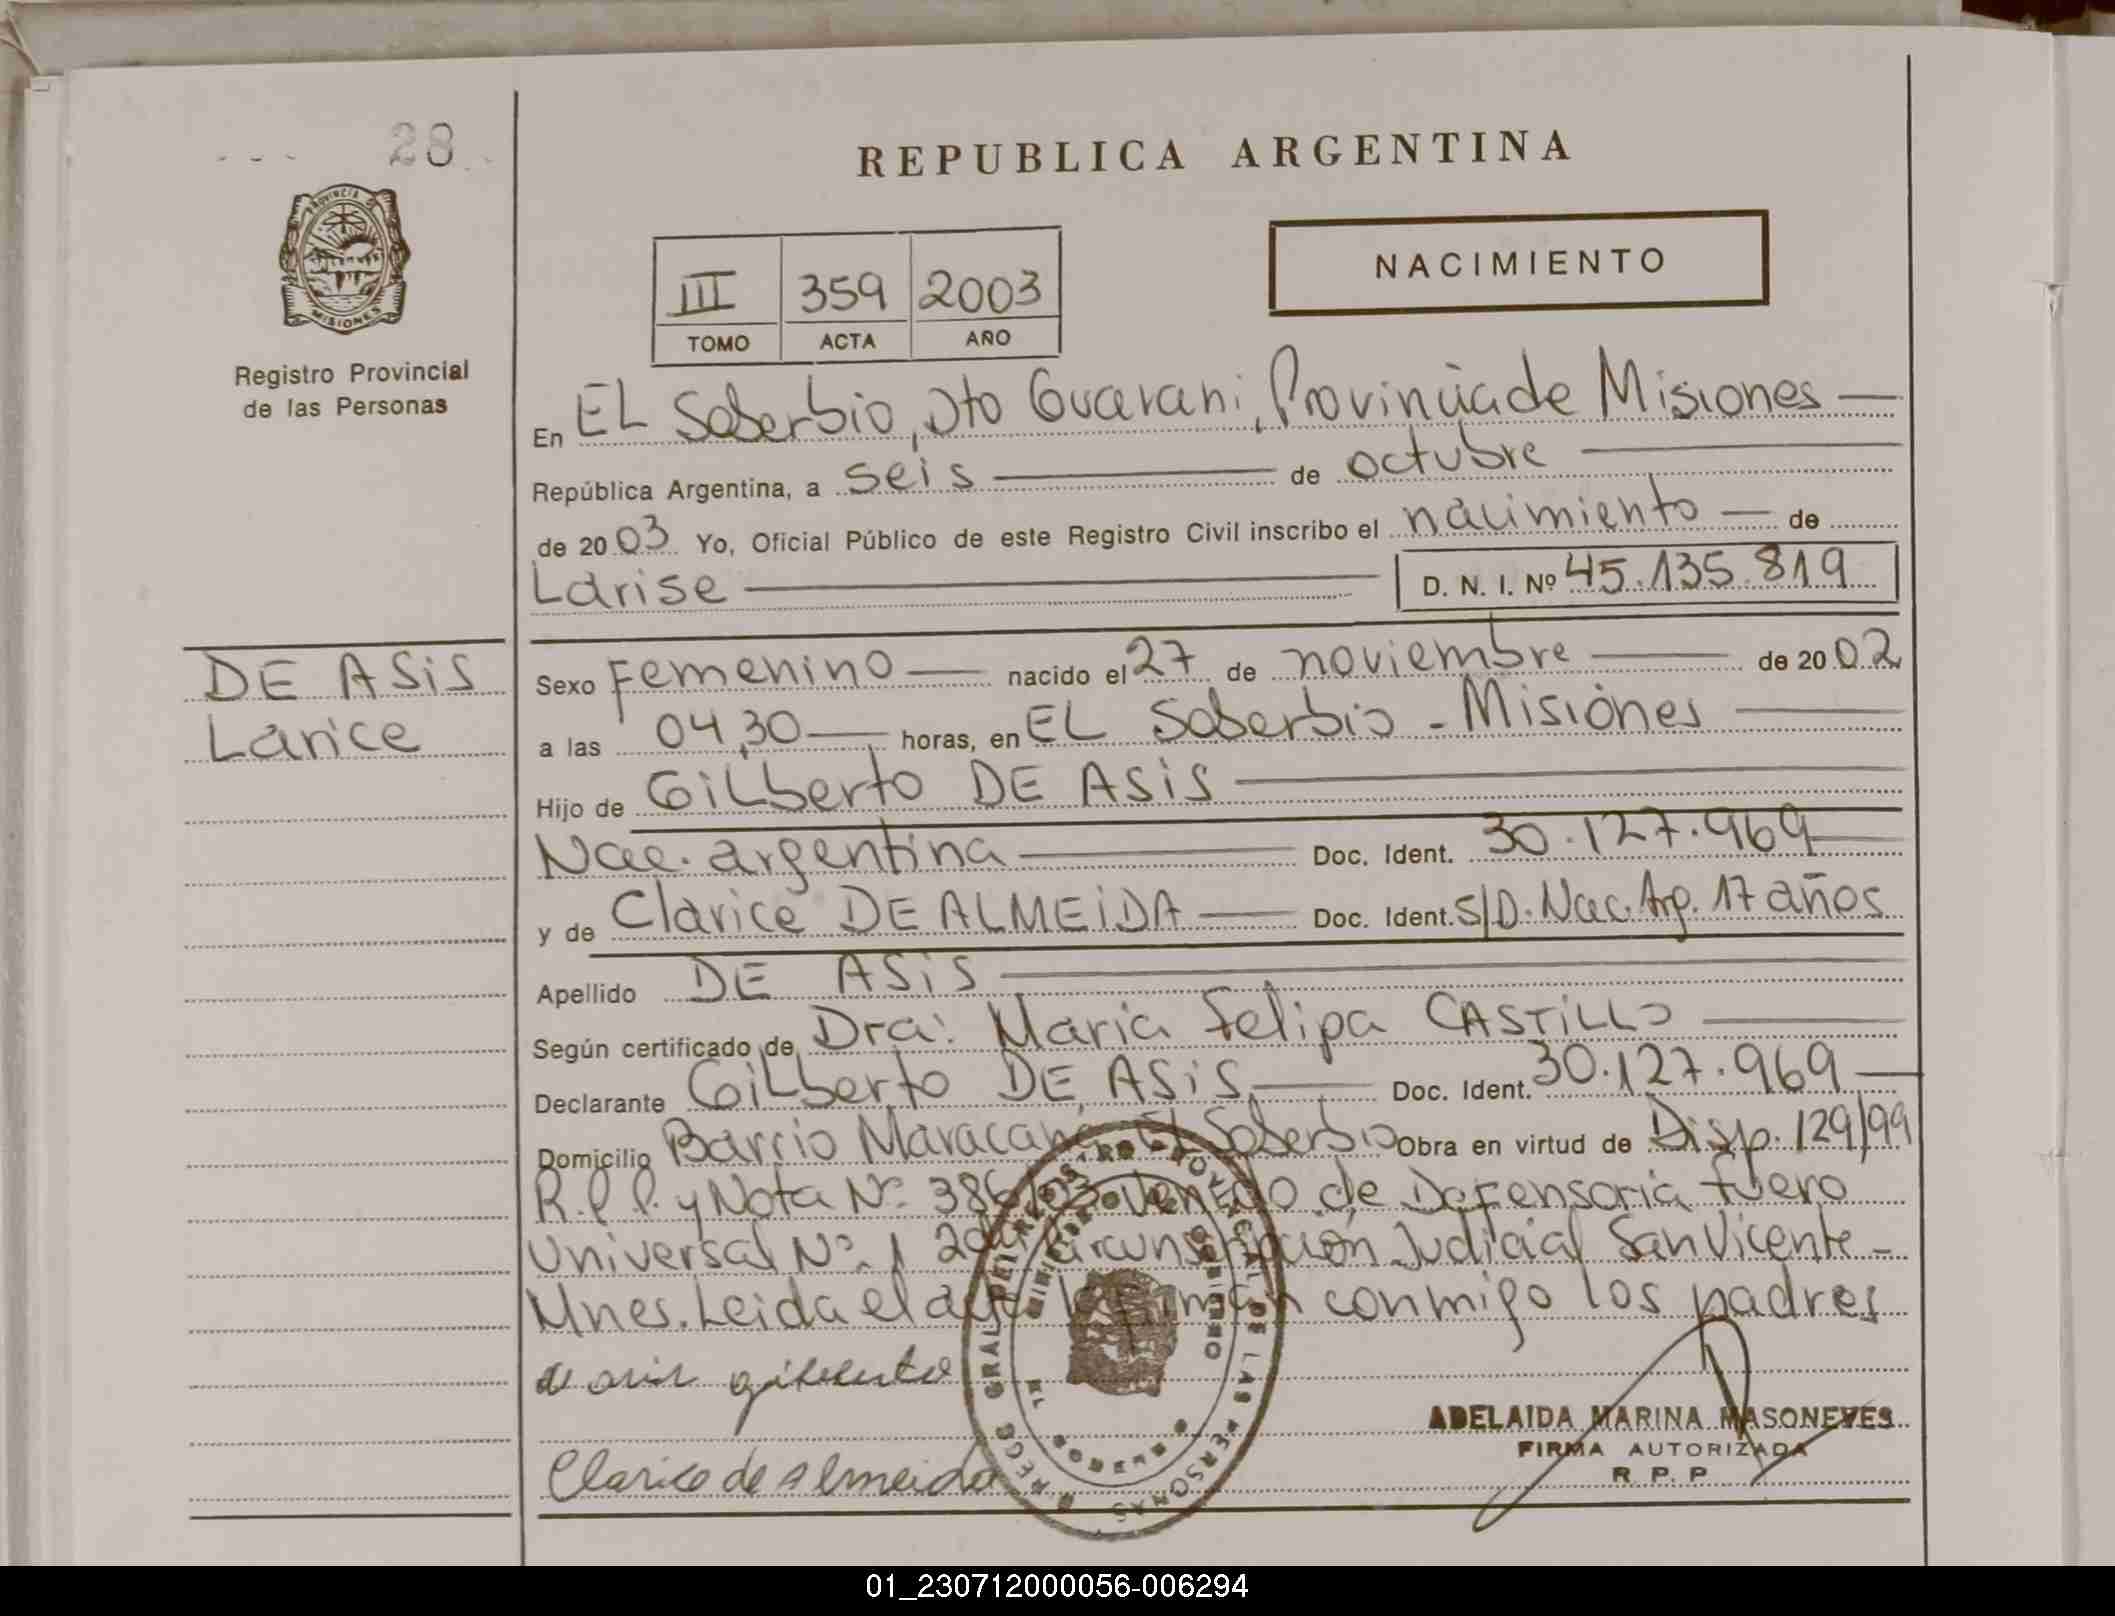 28
REPUBLICA ARGENTINA
PROVINCIA DE
MISIONES
Registro Provincial
de las Personas
III 359 2003
TOMO ACTA AÑO
NACIMIENTO
En EL Soberbio, Dto Guarani, Provincia de Misiones
República Argentina, a seis de octubre
de 2003 Yo, Oficial Público de este Registro Civil inscribo el nacimiento de
Larise D. N. I. Nº 45.135.819
DE ASiS
Larice
Sexo Femenino nacido el 27 de noviembre de 2002
a las 04,30 horas, en EL Soberbio - Misiones
Hijo de GiLberto DE ASiS
Nac. argentina Doc. Ident. 30.127.969
y de Clarice DE ALMEiDA Doc. Ident. S/D. Nac. Arg. 17 años
Apellido DE ASiS
Según certificado de Dra: Maria Felipa CASTiLLO
Declarante GiLberto DE ASiS Doc. Ident. 30.127.969
Domicilio Barrio Maracaná El Soberbio Obra en virtud de Disp. 129/99
R.P.P. y Nota Nº 386/03 venido de Defensoria fuero
Universal Nº 1 2da Circunscripción Judicial San Vicente -
Mnes. Leida el acta la firman conmigo los padres
de asis gilberto
Clarice de Almeida
ADELAIDA MARINA MASONEVES
FIRMA AUTORIZADA
R. P. P.
01_230712000056-006294